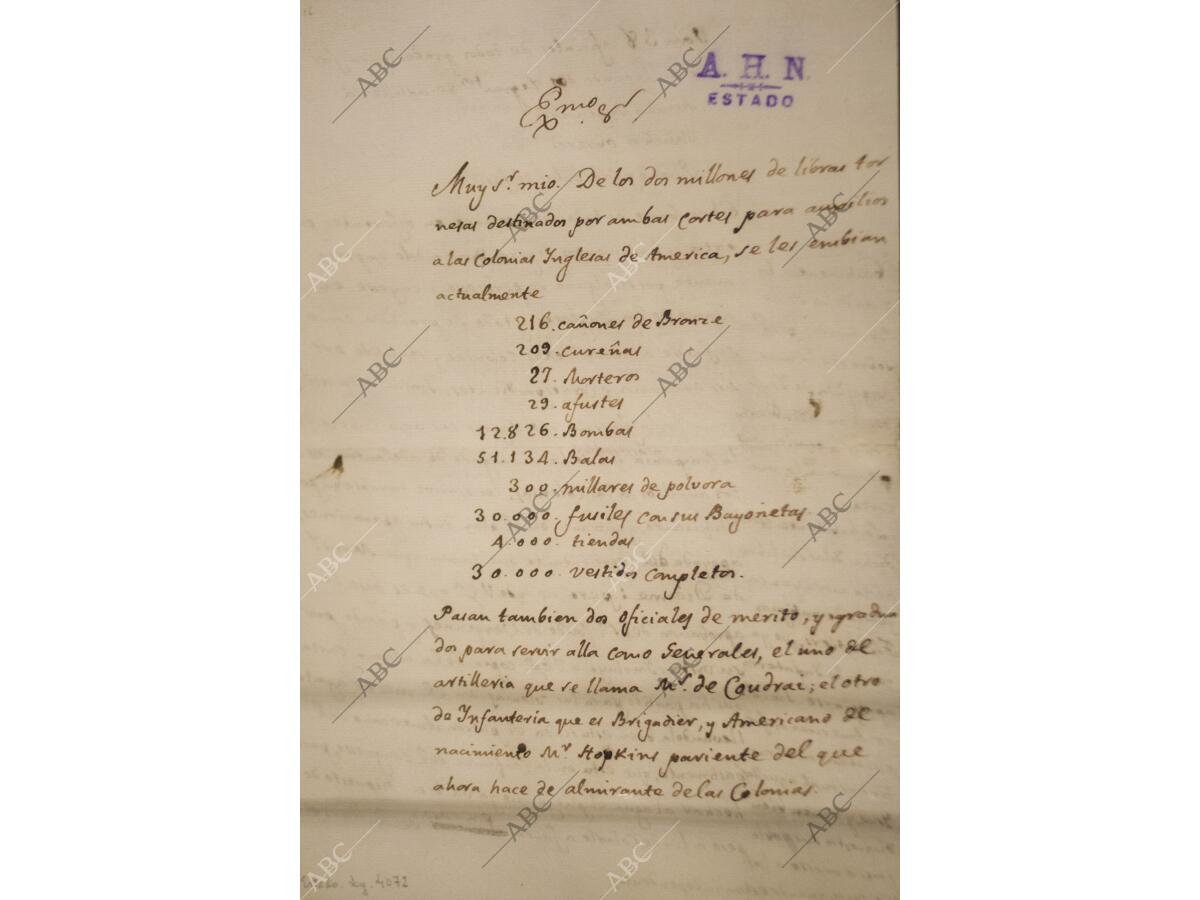 A. H. N.
ESTADO
Exmo. Sr
Muy Sr. mio. De los dos millones de libras tor
nesas destinados por ambas Cortes para auxilios
a las Colonias Inglesas de America, se les embian
actualmente
216. cañones de Bronze
209. cureñas
27. Morteros
29. afustes
12.826. Bombas
51.134. Balas
300. millares de polvora
30.000. fusiles con sus Bayonetas
4.000. tiendas
30.000. vestidos completos.
Pasan tambien dos oficiales de merito, y gradua
dos para servir alla como Generales, el uno de
artilleria que se llama Mr. de Coudrai; el otro
de Infanteria que es Brigadier, y Americano de
nacimiento Mr. Hopkins pariente del que
ahora hace de almirante de las Colonias.
Estado. Leg. 4072
ABC